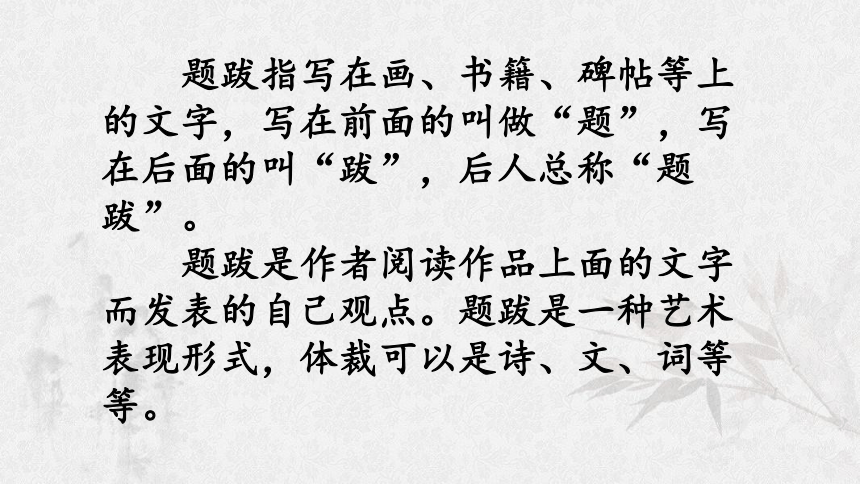 题跋指写在画、书籍、碑帖等上
的文字，写在前面的叫做“题”，写
在后面的叫“跋”，后人总称“题
跋”。
题跋是作者阅读作品上面的文字
而发表的自己观点。题跋是一种艺术
表现形式，体裁可以是诗、文、词等
等。